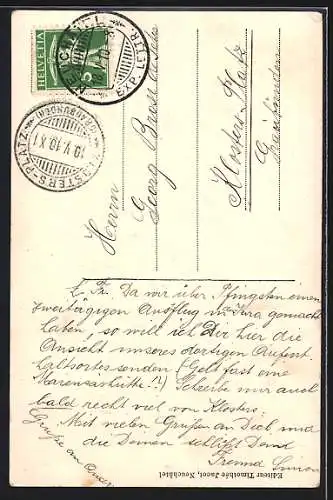 HELVETIA
5
EXP. LETTR.
KLOSTERS-PLATZ
(GRAUBÜNDEN)
10.V.10.XI
Herrn
Georg
Klosters-Platz
Graubünden
Da wir über Pfingsten einen
zweitägigen Ausflug in Jura gemacht
haben, so will ich Dir hier die
Ansicht unseres dortigen Aufent-
haltsortes senden (Geht fast eine
!?) Schreibe mir auch
bald recht viel von Klosters.
Mit vielen Grüßen an Dich und
die Deinen schließt Dein
Freund Simon
Grüße an
Editeur Timothée Jacot, Neuchâtel